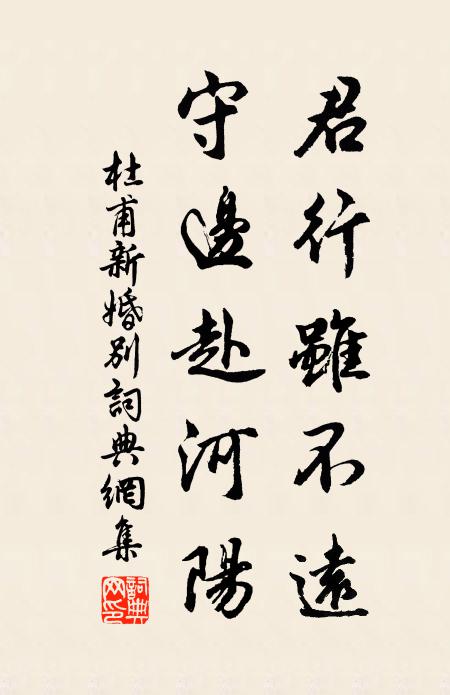 君行雖不遠
守邊赴河陽
杜甫新婚別詞典網集
詞典網印